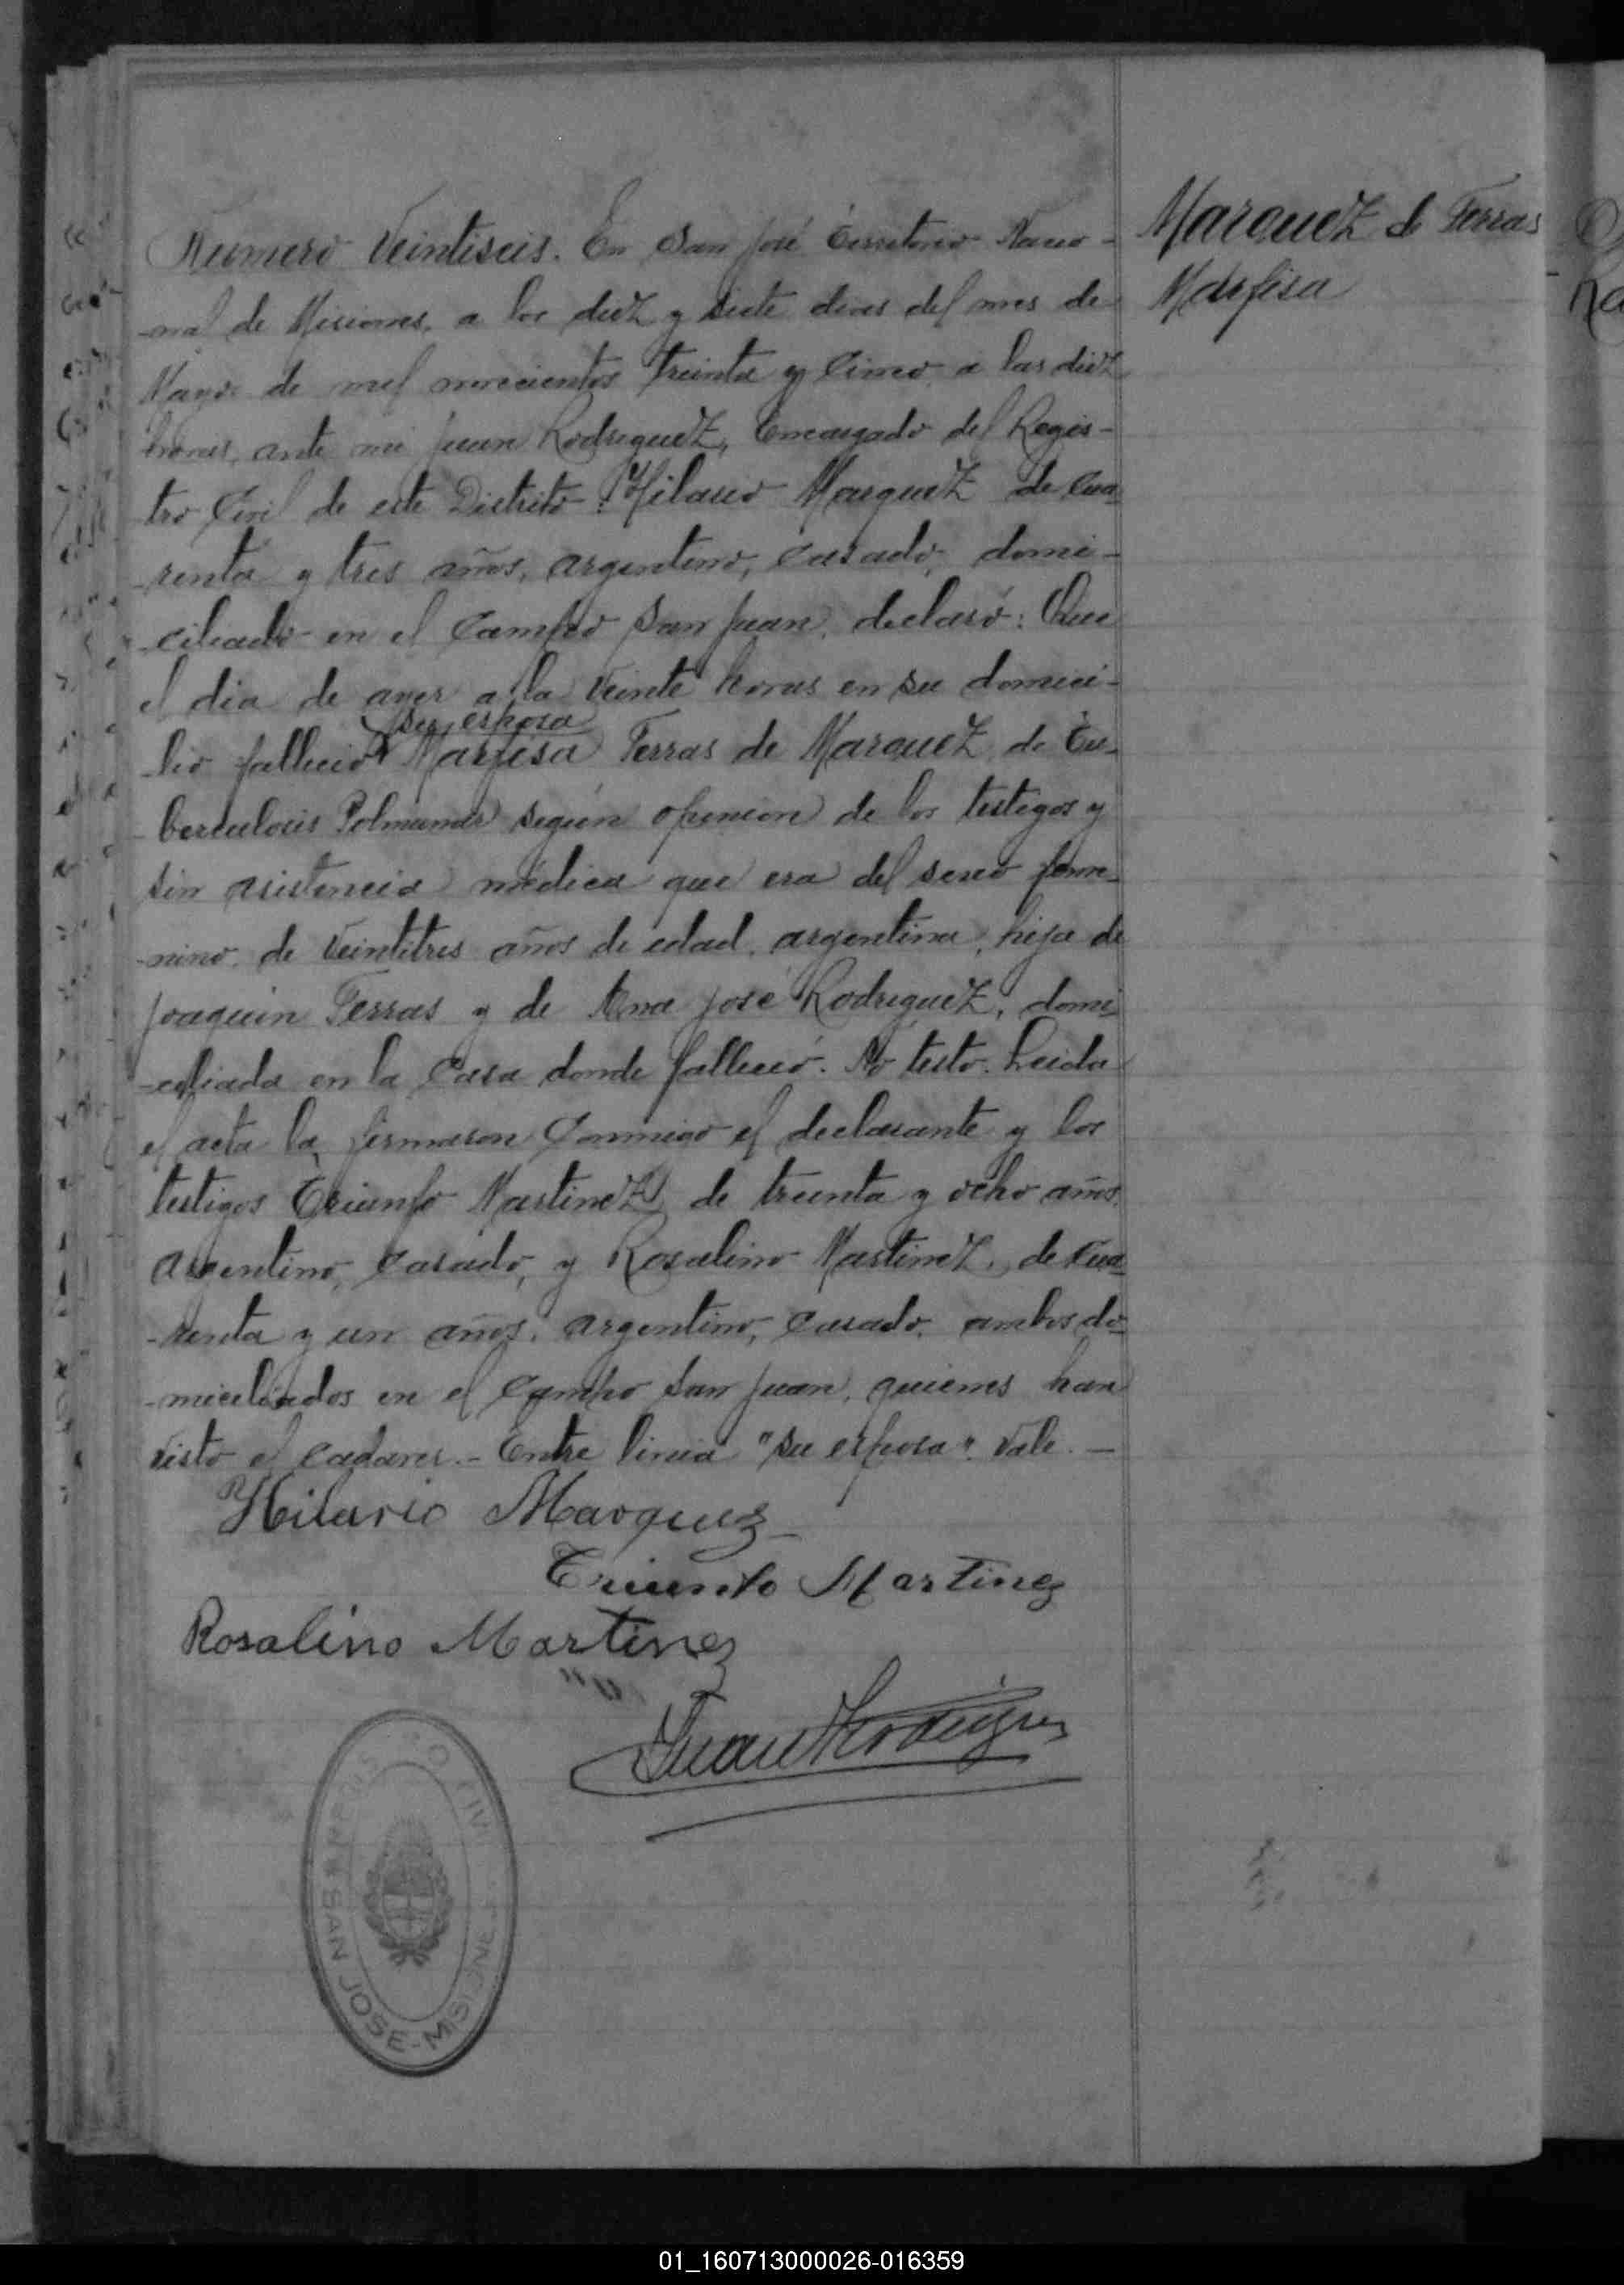 Marquez de Ferras
Marfisa
Numero Veintiseis. En San José Territorio Nacio-
-nal de Misiones, a los diez y siete dias del mes de
Mayo de mil novecientos treinta y Cinco, a las diez
horas, ante mi Juan Rodriguez, Encargado del Regis-
tro Civil de este Distrito: Hilario Marquez de Cua-
-renta y tres años, argentino, Casado, domi-
-ciliado en el Campo San Juan, declaró: Que
el dia de ayer a la Veinte horas en su domici-
su esposa
-lio falleció Marfisa Ferras de Marquez, de Tu-
-berculosis Polmunar según opinion de los testigos y
sin asistencia médica que era del sexo feme-
-nino, de Veintitres años de edad, argentina, hija de
Joaquin Ferras y de Ana José Rodriguez, domi
-ciliada en la Casa donde falleció. No testo. Leida
el acta la firmaron Conmigo el declarante y los
testigos Triunfo Martinez de treinta y ocho años,
argentino, Casado, y Rosalino Martinez, de Cua-
-renta y un años, argentino, Casado, ambos do-
-miciliados en el Campo San Juan, quienes han
visto el Cadaver.- Entre linia "su esposa". Vale.-
Hilario Marquez
Triunfo Martinez
Rosalino Martinez
Juan Rodriguez
SAN JOSE-MISIONES
01_160713000026-016359